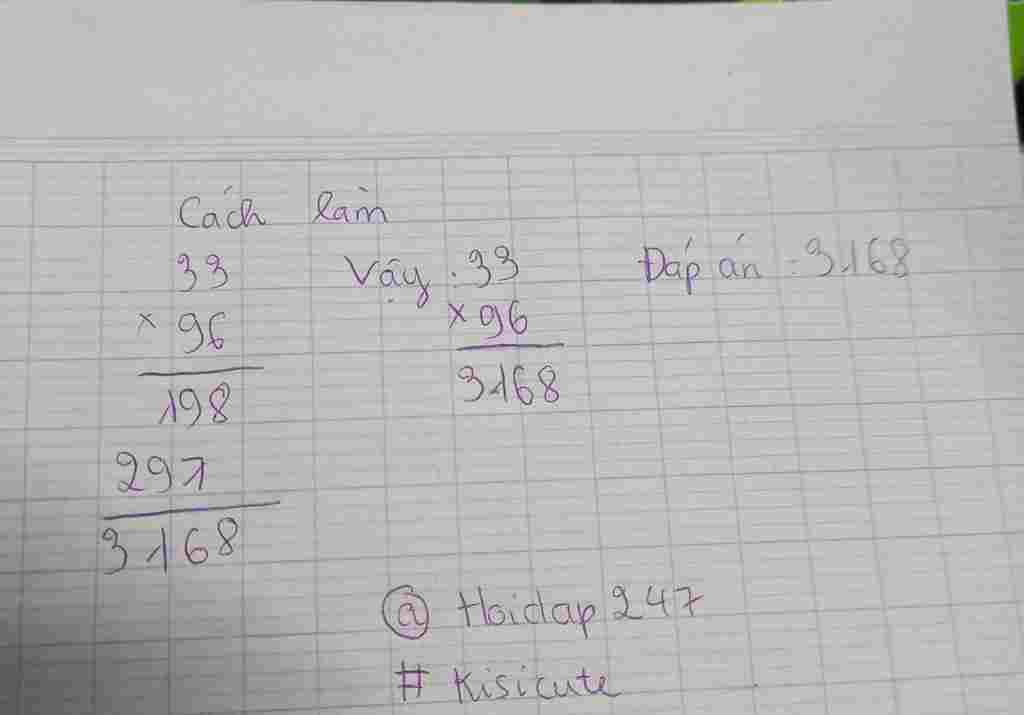 Cách làm
33 Vậy : 33 Đáp án : 3168
× 96 × 96
198 3168
297
3168
@ Hoidap 247
# Kisicute